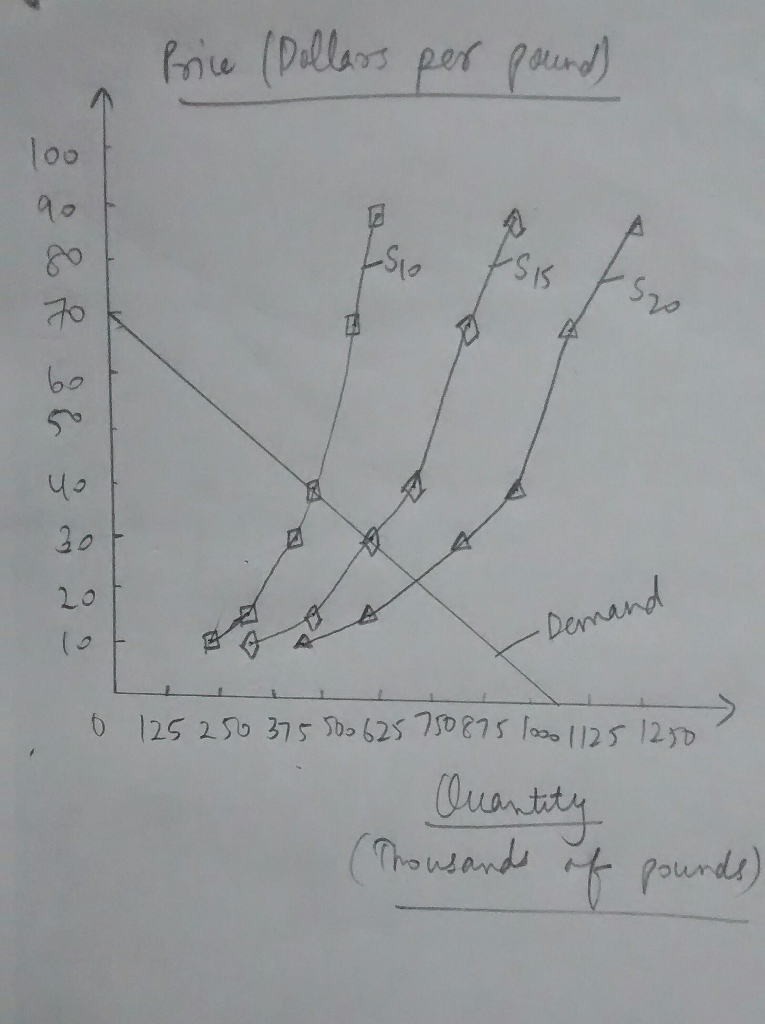 Price (Dollars per pound)
100
90
80
70
60
50
40
30
20
10
S10
S15
S20
Demand
0 125 250 375 500 625 750 875 1000 1125 1250
Quantity
(Thousands of pounds)